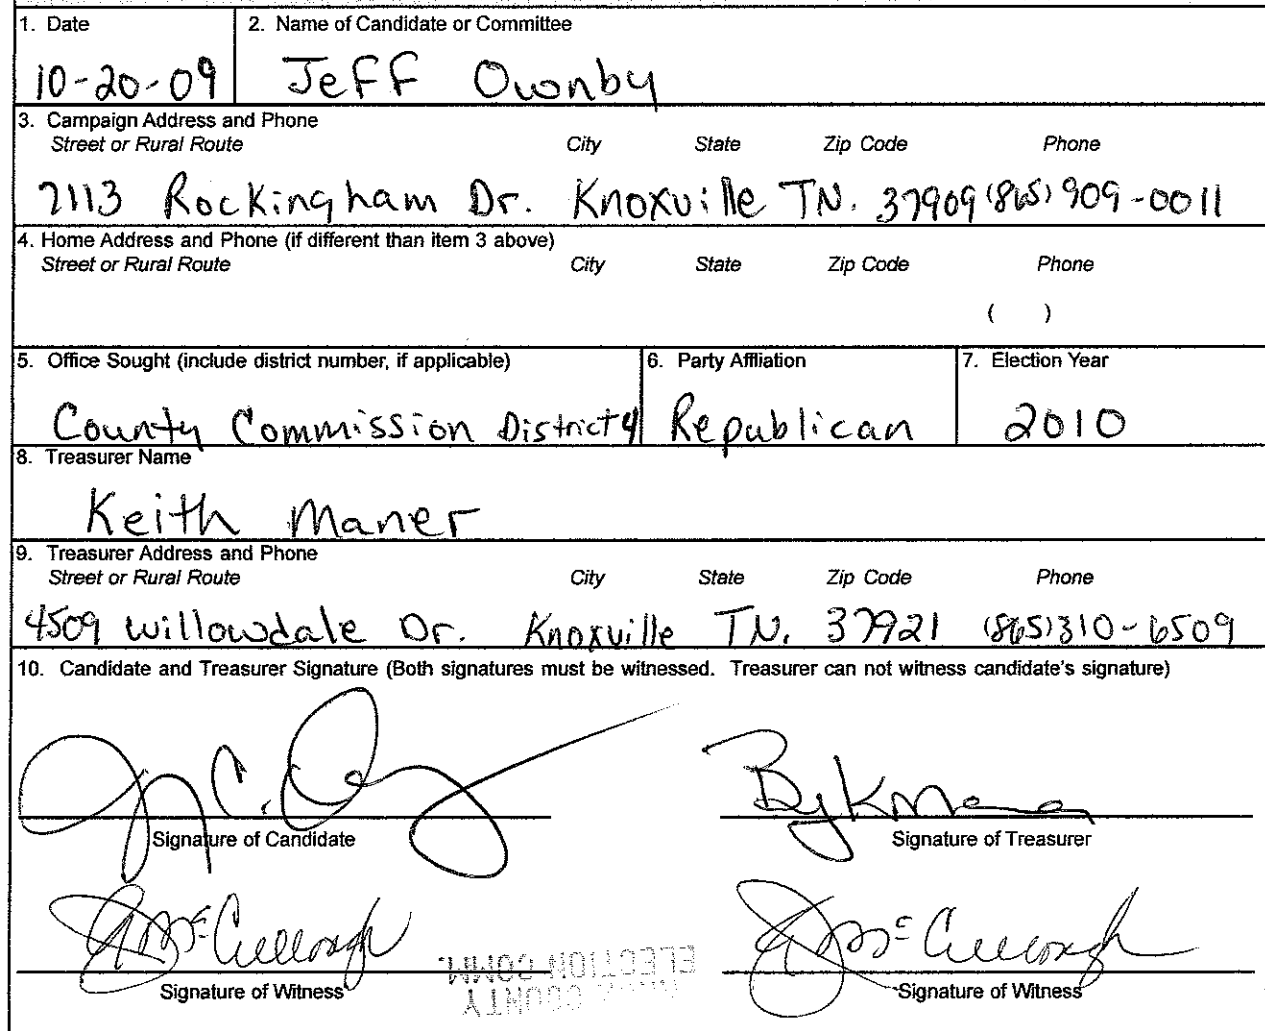 1. Date
2. Name of Candidate or Committee
10-20-09
Jeff Ownby
3. Campaign Address and Phone
Street or Rural Route City State Zip Code Phone
7113 Rockingham Dr. Knoxville TN. 37909 (865) 909-0011
4. Home Address and Phone (if different than item 3 above)
Street or Rural Route City State Zip Code Phone
( )
5. Office Sought (include district number, if applicable)
6. Party Affiliation
7. Election Year
County Commission District 4
Republican
2010
8. Treasurer Name
Keith Maner
9. Treasurer Address and Phone
Street or Rural Route City State Zip Code Phone
4509 Willowdale Dr. Knoxville TN. 37921 (865) 310-6509
10. Candidate and Treasurer Signature (Both signatures must be witnessed. Treasurer can not witness candidate's signature)
Signature of Candidate
Signature of Treasurer
McCullough
McCullough
Signature of Witness
Signature of Witness
COUNTY
ELECTION COMM.